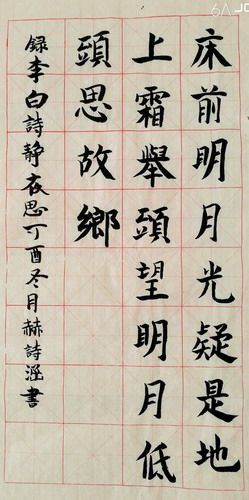 床前明月光疑是地
上霜舉頭望明月低
頭思故鄉
録李白詩静夜思丁酉冬月赫詩涵書